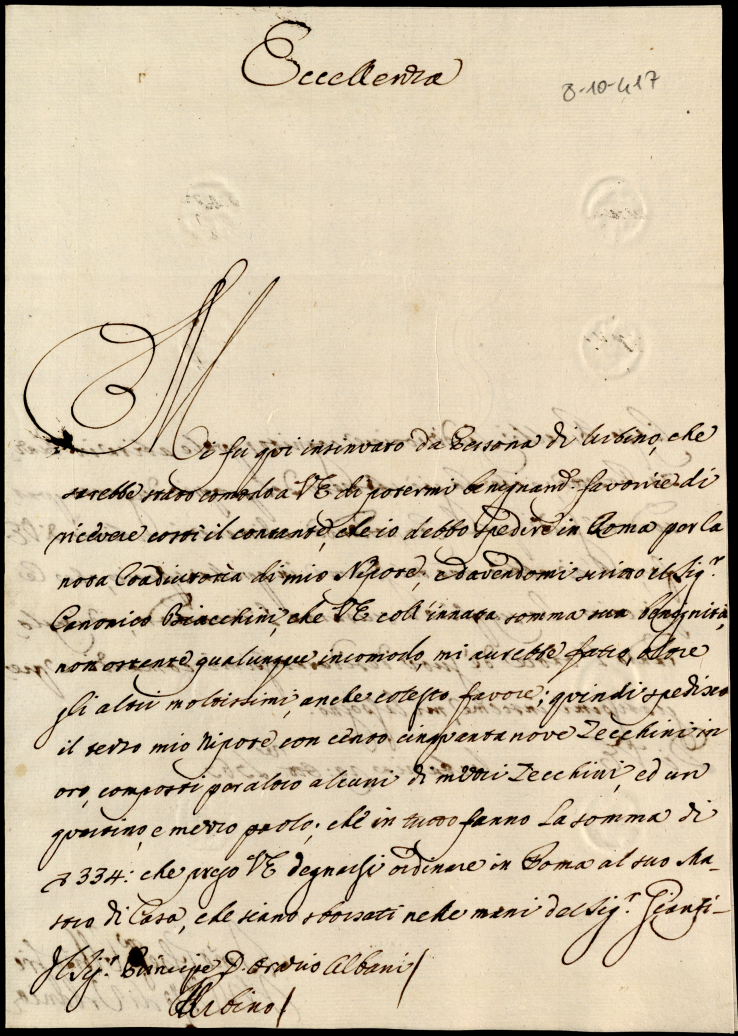 Eccellenza
8-10-417
Mi fu qui insinuato da Persona di Urbino, che
sarebbe stato comodo a VE di potermi benignam.e favorire di
ricevere costì il contante, che io debbo spedire in Roma per la
nota Coadiutoria di mio Nipote; ed avendomi scritto il Sig.r
Canonico Biacchini, che VE coll'innata somma sua benignità,
non ostante qualunque incomodo, mi avrebbe fatto, oltre
gli altri moltissimi, anche cotesto favore; quindi spedisco
il terzo mio Nipote con cento cinquanta nove Zecchini in
oro, composti per altro alcuni di mezzi Zecchini, ed un
quartino, e mezzo paolo; che in tutto fanno la somma di
334: che prego VE degnarsi ordinare in Roma al suo Ma-
stro di Casa, che siano sborsati nelle mani del Sig.r
Il Sig.r Principe D. Orazio Albani/
Urbino/